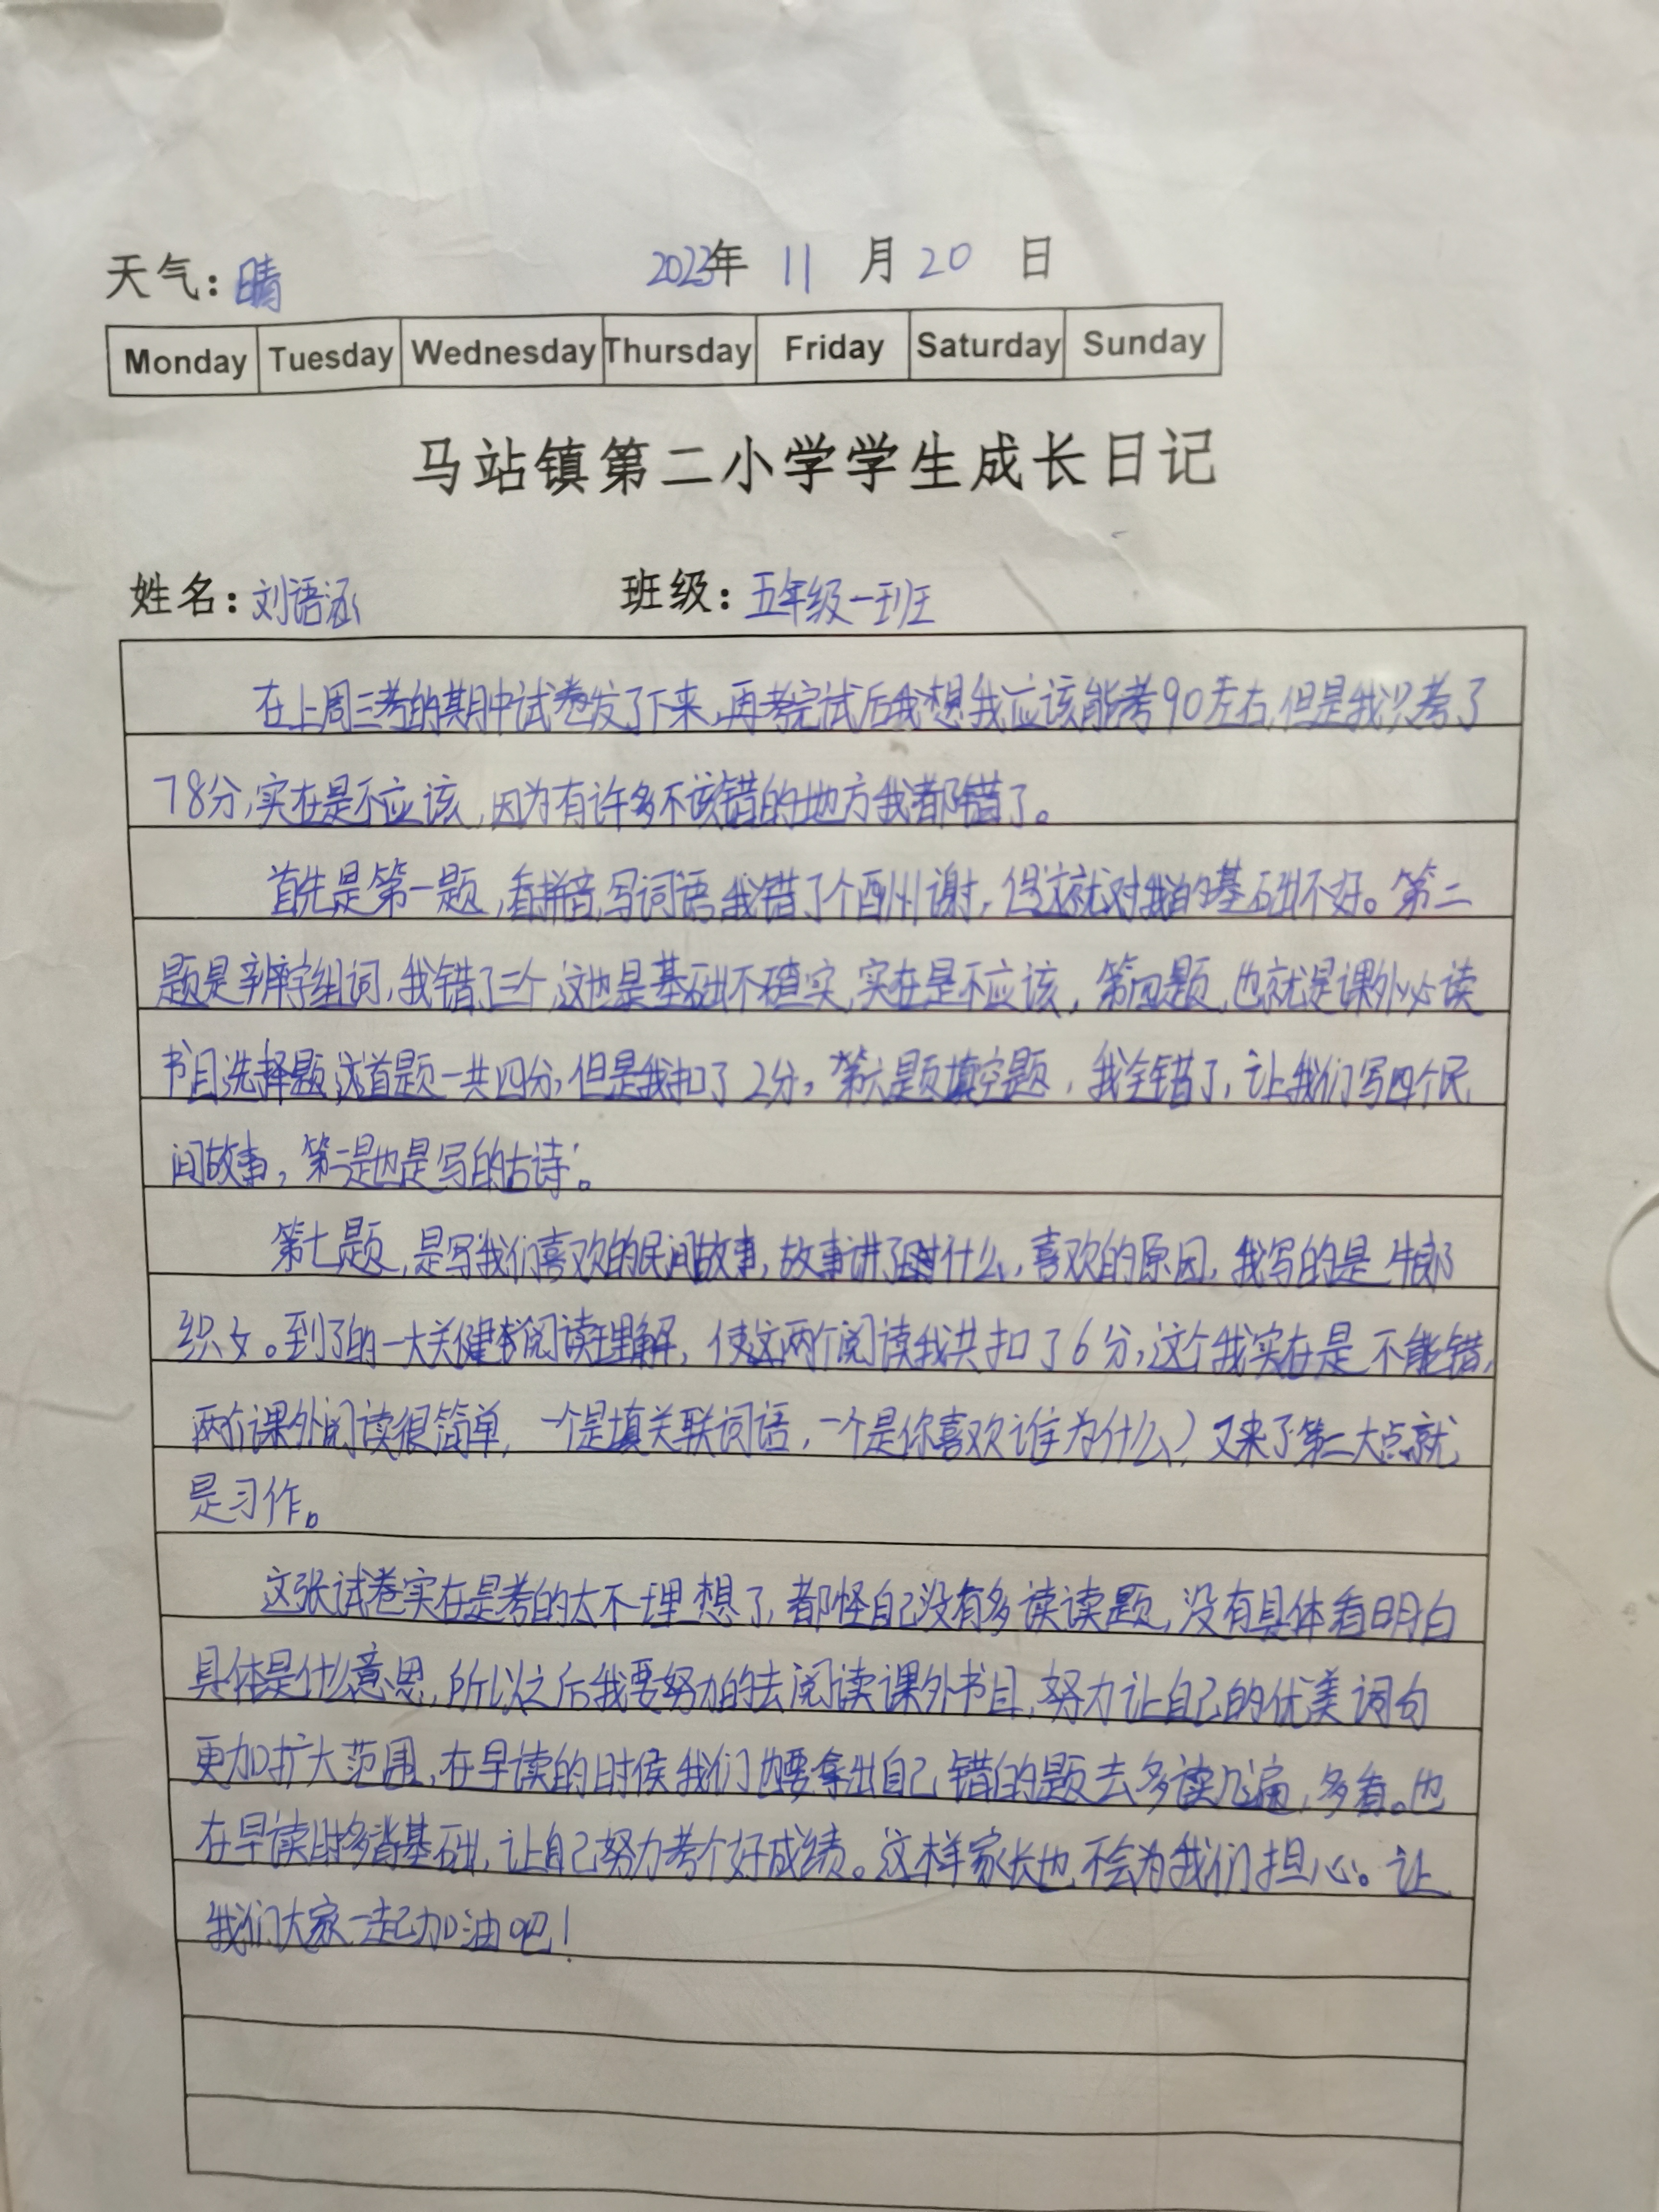 天气：晴 2023年 11 月 20 日
Monday Tuesday Wednesday Thursday Friday Saturday Sunday
马站镇第二小学学生成长日记
姓名：刘语涵 班级：五年级一班
在上周三考的其期中试卷发了下来，再考完试后我想我应该能考90左右，但是我只考了
78分，实在是不应该，因为有许多不该错的地方我都错了。
首先是第一题，看拼音，写词语我错了个酬谢，但这就对我的基础不好。第二
题是辨字组词，我错了三个，这也是基础不确实，实在是不应该，第四题，也就是课外必读
书目选择题，这首题一共四分，但是我扣了2分，第六是题填空题，我全错了，让我们写四个民
间故事，第二是也是写的古诗。
第七题，是写我们喜欢的民间故事，故事讲了什么，喜欢的原因，我写的是牛郎
织女。到了的一大关健阅读理解，使这两个阅读我共扣了6分，这个我实在是不能错，
两个课外阅读很简单，一个是填关联词语，一个是你喜欢谁为什么？又来了第二大点就
是习作。
这张试卷实在是考的太不理想了，都怪自己没有多读读题，没有具体看明白
具体是什么意思，所以之后我要努力的去阅读课外书目，努力让自己的优美词句
更加扩大范围，在早读的时候我们也要拿出自己错的题去多读几遍，多看。也
在早读时多背基础，让自己努力考个好成绩。这样家长也不会为我们担心。让
我们大家一起加油吧！